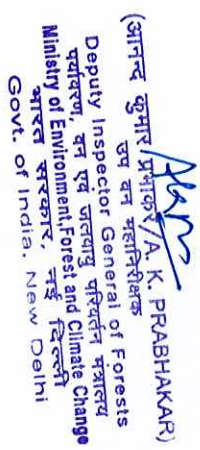 (आनन्द कुमार प्रभाकर/A. K. PRABHAKAR)
उप वन महानिरीक्षक
Deputy Inspector General of Forests
पर्यावरण, वन एवं जलवायु परिवर्तन मंत्रालय
Ministry of Environment,Forest and Climate Change
भारत सरकार, नई दिल्ली
Govt. of India, New Delhi